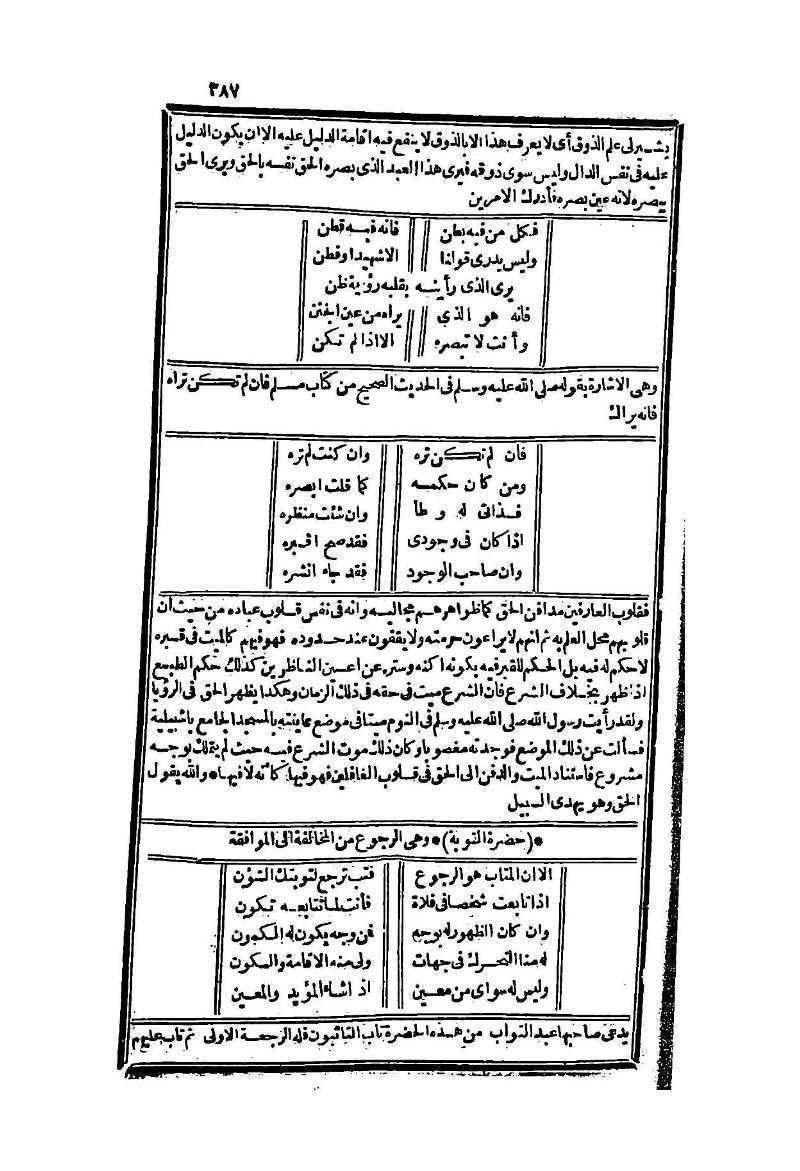 ٣٨٧
يشير لى علم الذوق أى لا يعرف هذا الا بالذوق لا ينفع فيه اقامة الدليل عليه الا ان يكون الدليل
عليه فى نفس الدال وليس سوى ذوقه فيرى هذا العبد الذى بصره الحق نفسه بالحق ويرى الحق
ببصره لانه عين بصره فأدرك الامرين
فكل من فيه بطن فانه فيه قطن
وليس يدرى قولنا الا شهيد او فطن
يرى الذى رأيته بقلبه رؤية ظن
فانه هو الذى يراه من عين الجنن
وأنت لا تبصره الا اذا لم تكن
وهى الاشارة بقوله صلى الله عليه وسلم فى الحديث الصحيح من كتاب مسلم فان لم تكن تراه
فانه يراك
فان لم تكن تره وان كنت لم تره
ومن كان حكمه كما قلت ابصره
فذاتى له وطا وان شئت منظره
اذا كان فى وجودى فقد صح اقبره
وان صاحب الوجود فقد جاء انشره
فقلوب العارفين مدافن الحق كما ظواهرهم مجاليه وانه فى نفس قلوب عباده من حيث أن
قلوبهم محل العلم به ثم انهم لا يراعون حرمته ولا يقفون عند حدوده فهو فيهم كالميت فى قبره
لا حكم له فيه بل الحكم للقبر فيه بكونه اكنه وستره عن اعين الناظرين كذلك حكم الطبع
اذا ظهر بخلاف الشرع فان الشرع ميت فى حقه فى ذلك الزمان وهكذا يظهر الحق فى الرؤيا
ولقد رأيت رسول الله صلى الله عليه وسلم فى النوم ميتا فى موضع عاينته بالمسجد الجامع باشبيلية
فسألت عن ذلك الموضع فوجدته مغصوبا وكان ذلك موت الشرع فيه حيث لم يتملك بوجه
مشروع فاستناد الميت والدفن الى الحق فى قلوب الغافلين فهو فيها كأنه لا فيها * والله يقول
الحق وهو يهدى السبيل
*(حضرة التوبة)* وهى الرجوع من المخالفة الى الموافقة
الا ان المتاب هو الرجوع فتب ترجع لتوبتك الشؤن
اذا تابعت شخصا فى فلاة فأنت لما تتابعه تكون
وان كان الظهور له بوجه فمن وجه يكون له الكمون
له منا التحرك فى جهات ولى منه الاقامة والسكون
وليس له سواى من معين اذ اشاء المؤيد والمعين
يدعى صاحبها عبد التواب من هذه الحضرة تاب التائبون فله الرجعة الاولى ثم تاب عليهم